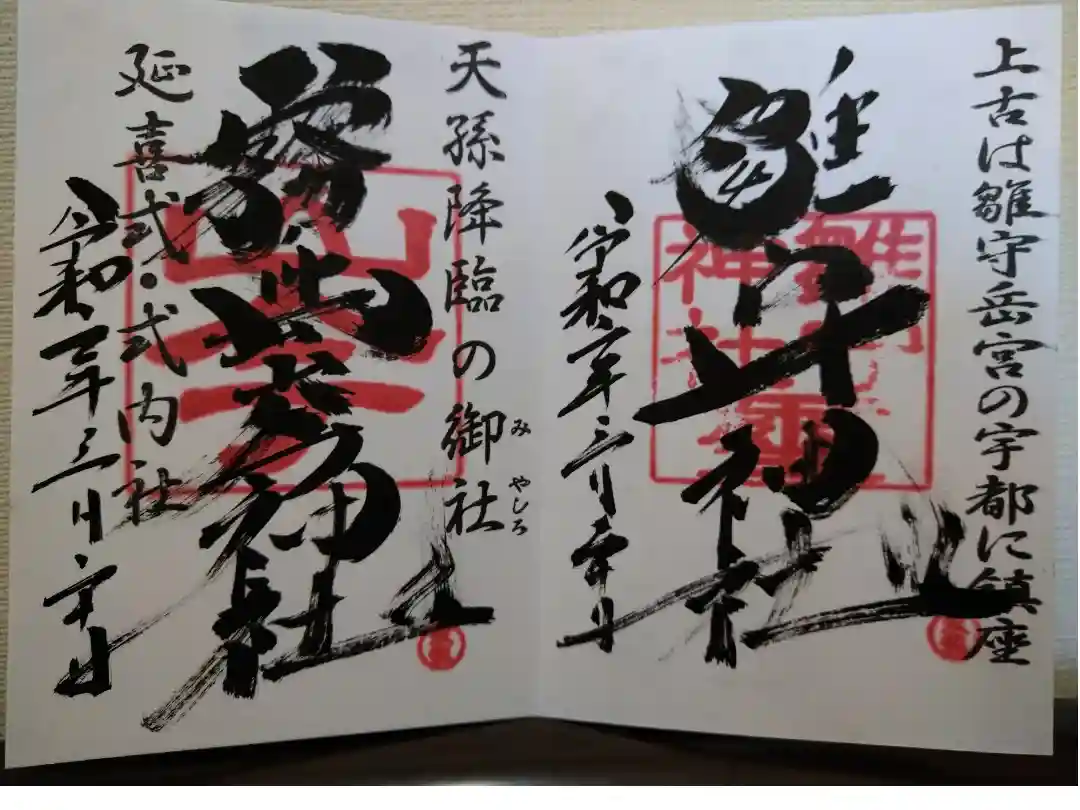 上古は雛守岳宮の宇都に鎮座
雛守神社
令和六年三月
天孫降臨の御社
みやしろ
霧島岑神社
延喜式・式内社
令和六年三月